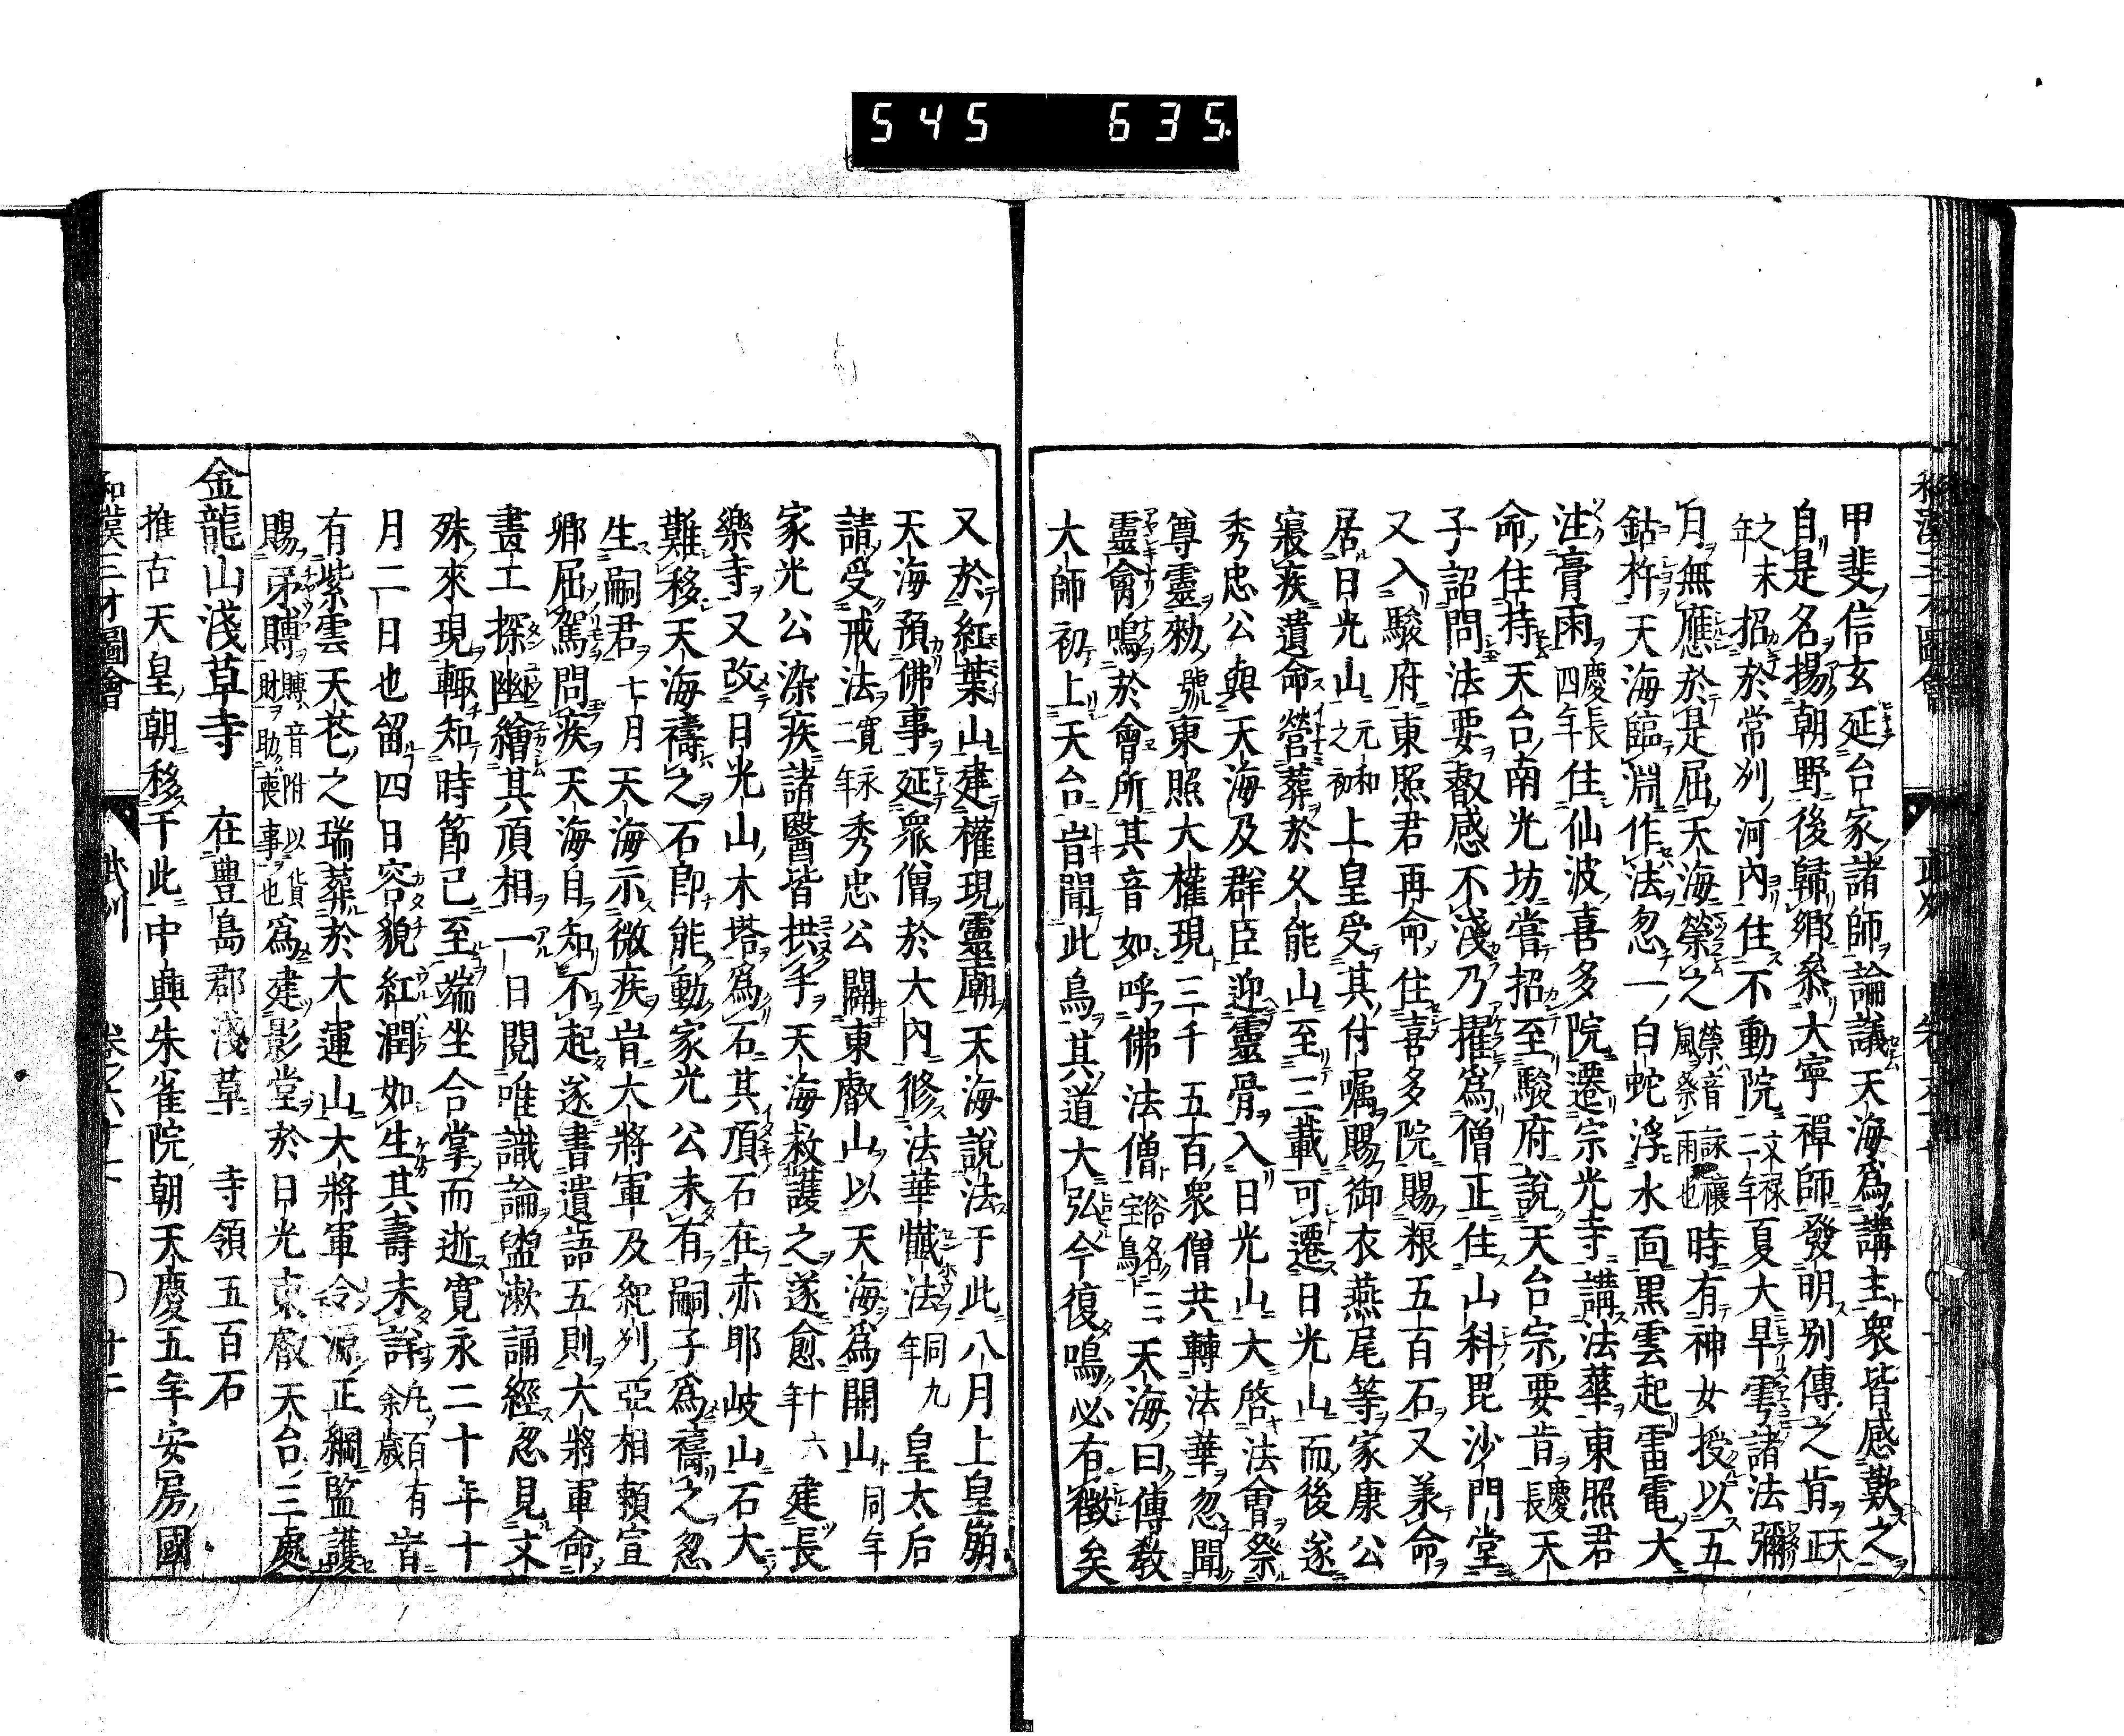 545 635
甲斐信玄延台家諸師論議天海爲講主衆皆感歎之
自是名揚朝野後歸鄉參大寧禪師發明別傳之肯 天正
之末年 招於常刕河內住不動院 文禄二年 夏大旱雩諸法彌
月無應於是屈天海禜之 禜音詠禳風祭雨也 時有神女授以五
鈷杵天海臨淵作法忽一白蛇浮水面黒雲起雷電大
注膏雨 慶長四年 住仙波喜多院遷宗光寺講法華東照君
命住持天台南光坊嘗招至駿府說天台宗要肯 慶長 天
子詔問法要叡感不淺乃擢爲僧正住山科毘沙門堂
又入駿府東照君再命住喜多院賜粮五百石又兼命
居日光山 元和之初 上皇受其付嘱賜御衣燕尾等家康公
寢疾遺命營葬於久能山至三載可遷日光山而後遂
秀忠公與天海及群臣迎靈骨入日光山大啓法會祭
尊靈勑號東照大權現三千五百衆僧共轉法華忽聞
靈禽鳴於會所其音如呼佛法僧 俗名三宝鳥 天海曰傳教
大師初上天台旹聞此鳥其道大弘今復鳴必有徵矣
又於紅葉山建權現靈廟天海說法于此八月上皇崩
天海預佛事延衆僧於大内修法華懺法 同九年 皇太后
請受戒法 寛永二年 秀忠公闢東叡山以天海爲開山 同年
家光公染疾諸醫皆拱手天海救護之遂愈 十六年 建長
樂寺又改日光山木塔爲石其頂石在赤耶岐山石大
難移天海禱之石卽能動家光公未有嗣子爲禱之忽
生嗣君七月天海示微疾旹大將軍及紀刕亞相賴宣
鄉屈駕問疾天海自知不起遂書遺語五則大將軍命
畫工探幽繪其頂相一日閱唯識論盥漱誦經忽見文
殊來現輙知時節已至端坐合掌而逝寛永二十年十
月二日也留四日容貌紅潤如生其壽未詳 凡百有余歲 旹
有紫雲天花之瑞葬於大運山大將軍令源正綱監護
賜弟賻 賻音附以貨財助喪事也 爲建影堂於日光東叡天台三處
金龍山淺草寺 在豊島郡淺草 寺領五百石
推古天皇朝移于此中興朱雀院朝天慶五年安房國
和漢三才圖會 武州 卷之六十七 〇廿二